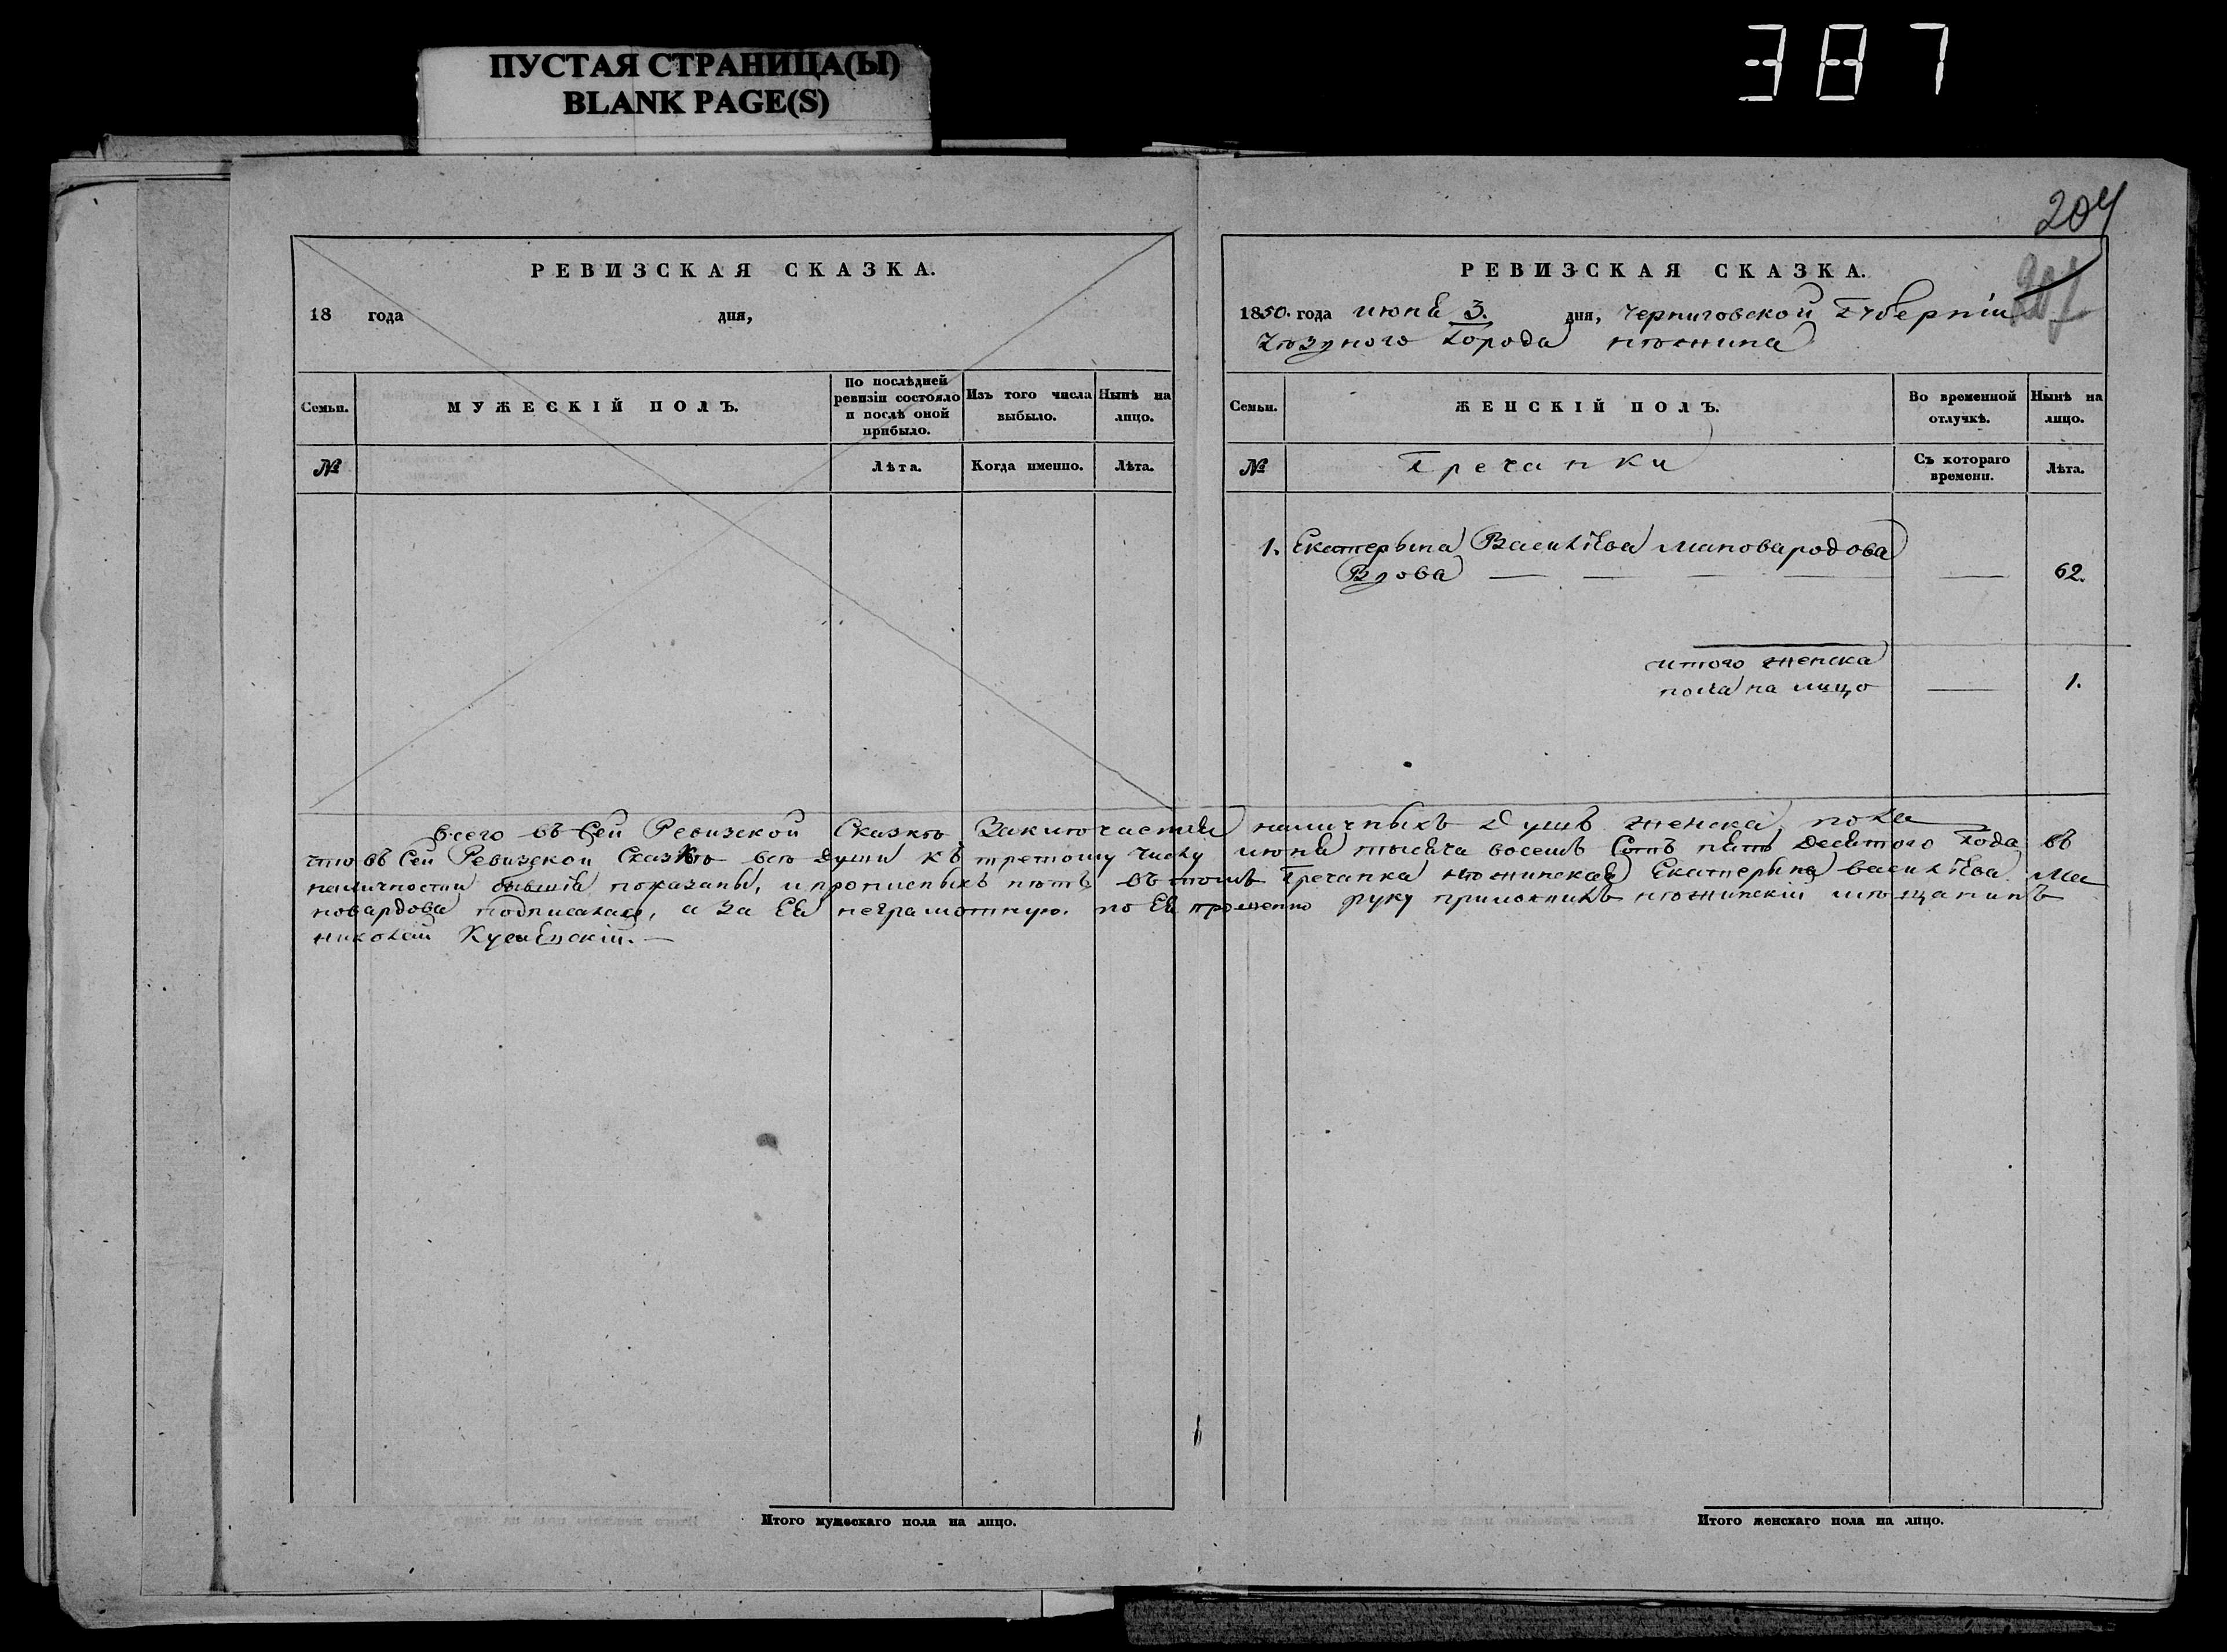 ПУСТАЯ СТРАНИЦА(Ы)
BLANK PAGE(S)
387
204
РЕВИЗСКАЯ СКАЗКА.
18 года дня,
Семьи. МУЖЕСКІЙ ПОЛЪ. По послѣдней ревизіи состояло и послѣ оной прибыло. Изъ того числа выбыло. Нынѣ на лицо.
№ Лѣта. Когда именно. Лѣта.
РЕВИЗСКАЯ СКАЗКА.
1850. года июня 3. дня, Черниговской Губерніи
уѣзднаго города нѣжина
Семьи. ЖЕНСКІЙ ПОЛЪ. Во временной отлучкѣ. Нынѣ на лицо.
№ Гречанки Съ котораго времени. Лѣта.
1. Екатерына Васильѣва Мановародова
Вдова — — — — — 62.
итого женска
пола на лицо — 1.
Всего въ Сей Ревизской Сказкѣ Заключается наличныхъ Душъ женска пола
что въ Сей Ревизской Сказкѣ всѣ души къ третому числу июня тысяча восемъ Сотъ пять десятого Года въ
наличности бывшія показаны, и прописныхъ нѣтъ въ томъ Гречанка нѣжинская Екатерына васильѣва Ма
новардова подписалась, а за Ея неграмотную по Ея прошению руку приложилъ нѣжинскій мѣщанинъ
николай
Итого мужескаго пола на лицо.
Итого женскаго пола на лицо.